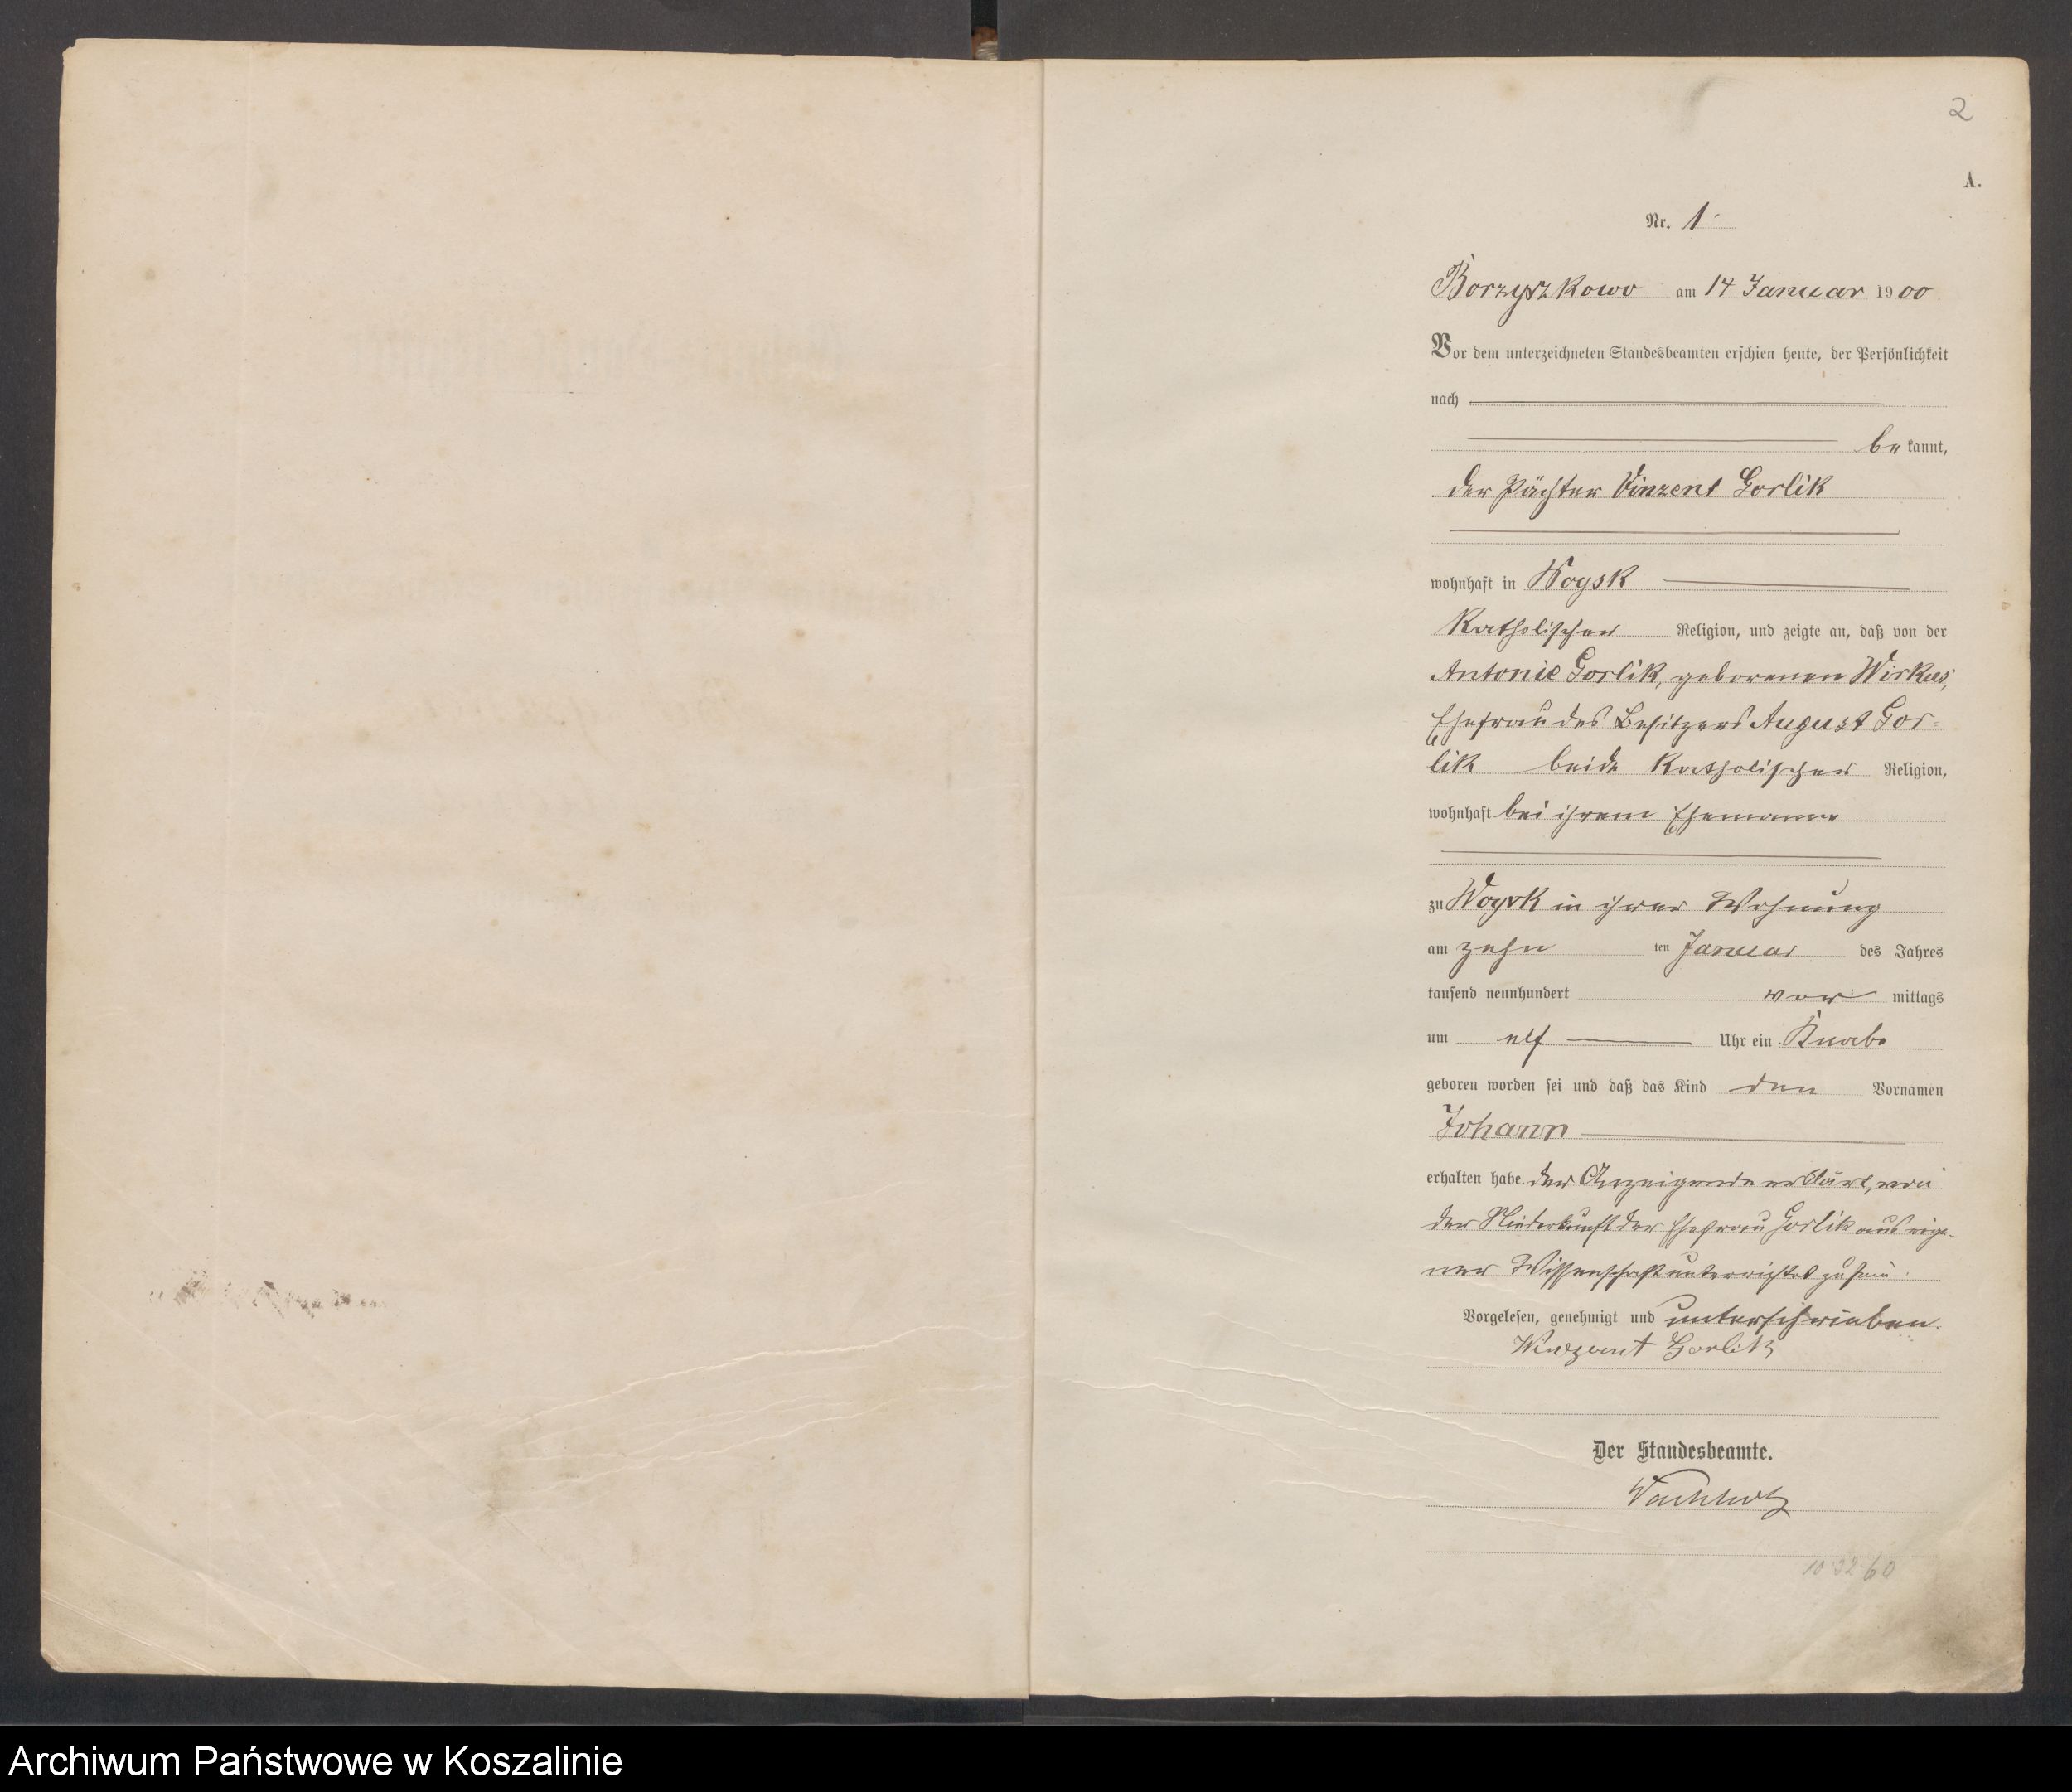 2
A.
Nr. 1
Borzyszkowo am 14 Januar 1900
Vor dem unterzeichneten Standesbeamten erschien heute, der Persönlichkeit
nach
be kannt,
der Pächter Vinzent Gorlik
wohnhaft in Woysk
katholischer Religion, und zeigte an, daß von der
Antonie Gorlik, geborenen Wirkus,
Ehefrau des Besitzers August Gor=
lik beide katholischer Religion,
wohnhaft bei ihrem Ehemanne
zu Woysk in ihrer Wohnung
am zehn ten Januar des Jahres
tausend neunhundert vor mittags
um elf Uhr ein Knabe
geboren worden sei und daß das Kind den Vornamen
Johann
erhalten habe. Der Anzeigende erklärt, von
der Niederkunft der Ehefrau Gorlik aus eige-
ner Wissenschaft unterrichtet zu sein.
Vorgelesen, genehmigt und unterschrieben.
Winzent Gorlik
Der Standesbeamte.
10 32 60
Archiwum Państwowe w Koszalinie